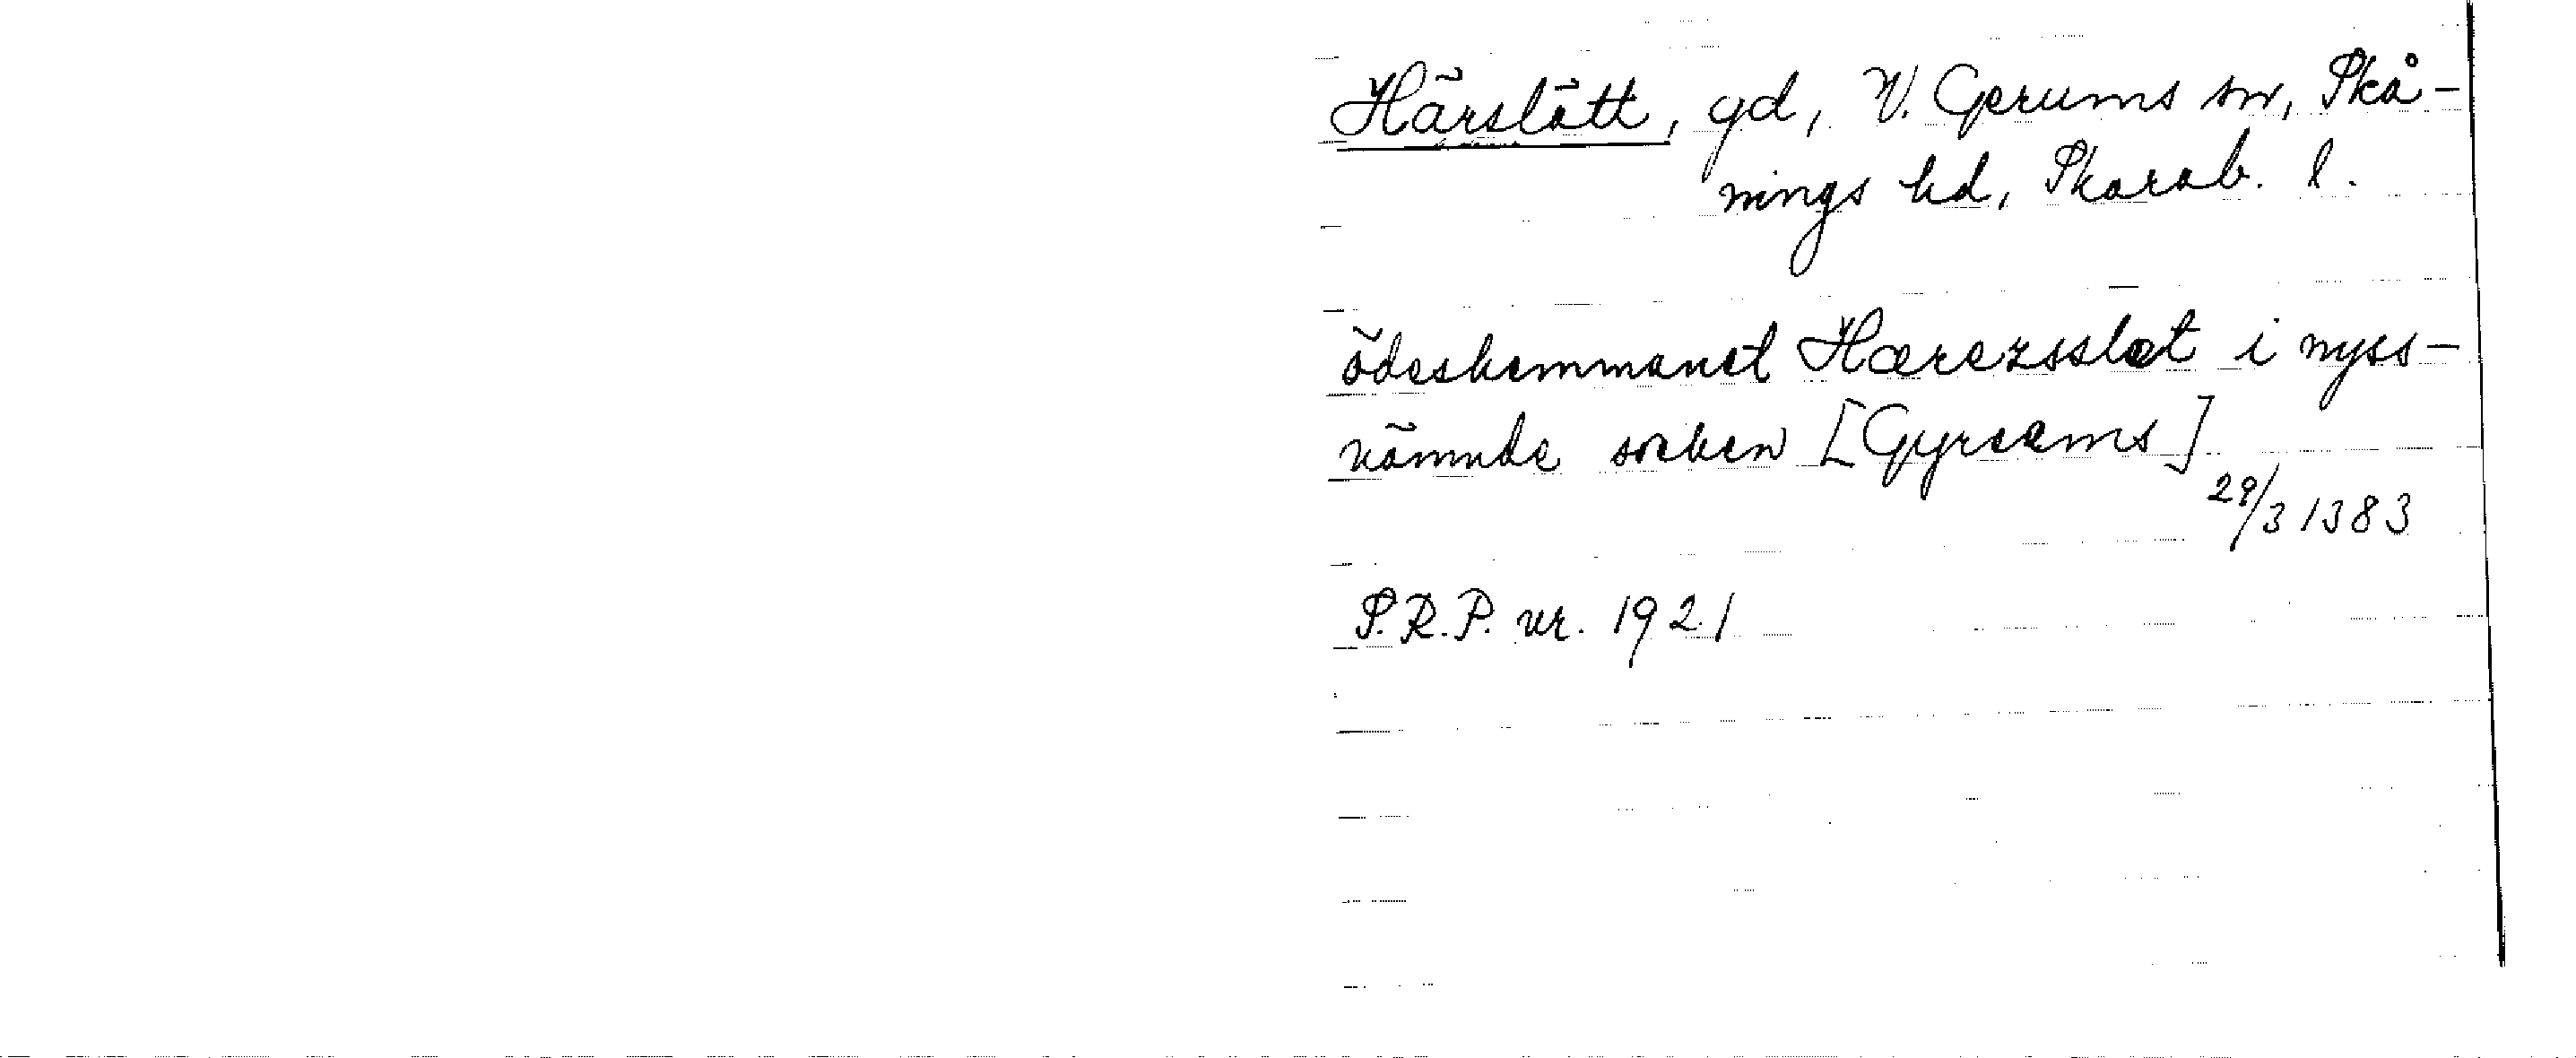 Härslätt, gd, V. Gerums sn, Skå-
nings hd, Skarab. l.
ödeshemmanet Hærezsslæt i nyss-
nämnda socken [Gyreems]
29/3 1383
S.R.P. nr. 1921